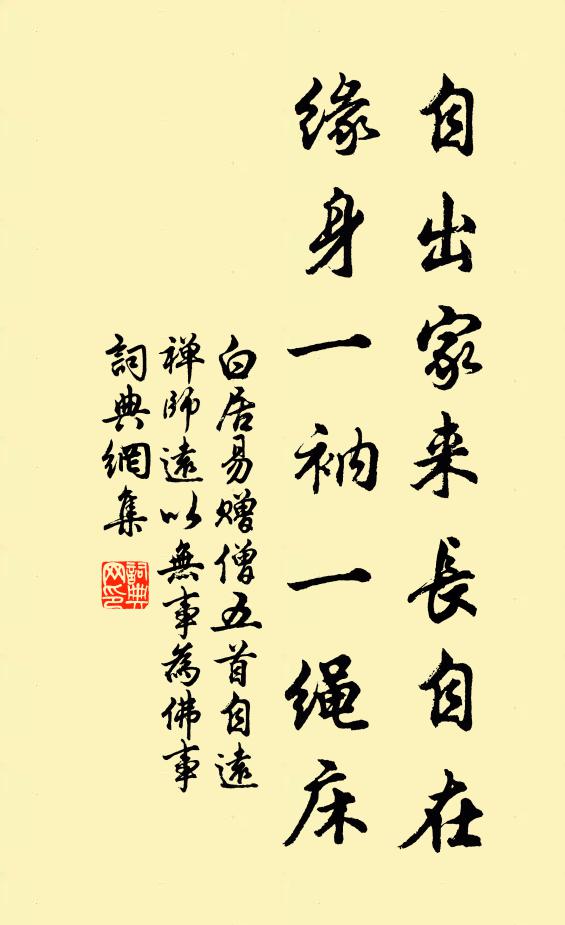 自出家来長自在
缘身一衲一绳床
白居易赠僧五首自遠
禅師遠以無事為佛事
詞典網集
詞典
网印